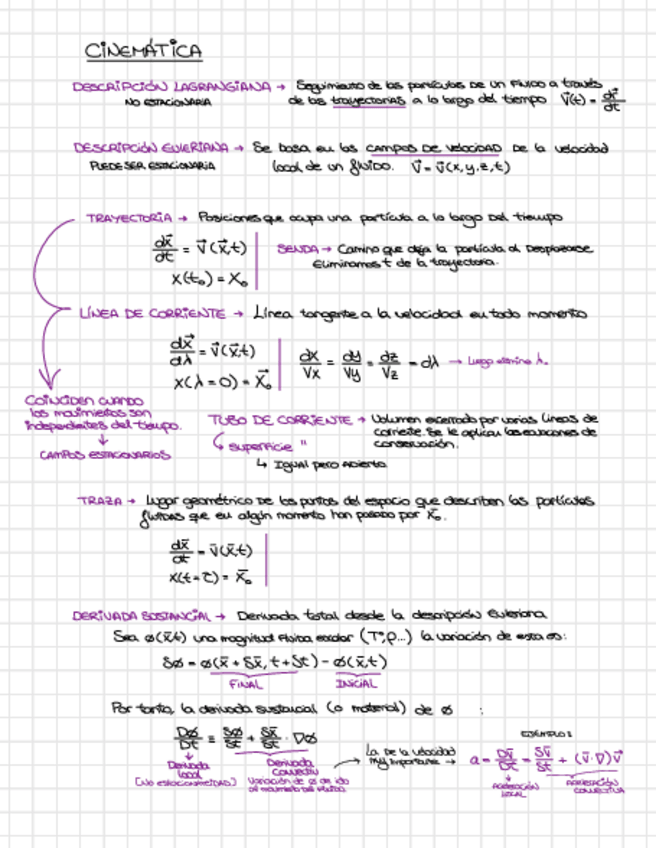 CINEMÁTICA
DESCRIPCIÓN LAGRANGIANA → Seguimiento de las partículas de un fluido a través
NO ESTACIONARIA de las trayectorias a lo largo del tiempo V⃗(t) = dr⃗/dt
DESCRIPCIÓN EULERIANA → Se basa en los CAMPOS DE VELOCIDAD De la velocidad
PUEDE SER ESTACIONARIA local de un fluido. V⃗ = V⃗(x,y,z,t)
TRAYECTORIA → Posiciones que ocupa una partícula a lo largo Del tiempo
dx⃗/dt = V⃗(x⃗,t)
x(t₀) = X₀
SENDA → Camino que deja la partícula al Desplazarse
Eliminamos t de la trayectoria.
LÍNEA DE CORRIENTE → Línea tangente a la velocidad en todo momento
dx⃗/dλ = V⃗(x⃗,t)
x(λ=0) = X⃗₀
dx/Vx = dy/Vy = dz/Vz = dλ → Luego elimino λ.
COINCIDEN CUANDO
los movimientos son
independientes del tiempo.
↓
CAMPOS ESTACIONARIOS
TUBO DE CORRIENTE → Volumen encerrado por varias líneas de
corriente. Se le aplican las ecuaciones de
conservación.
↳ superficie "
↳ IGUAL pero Abierto
TRAZA → Lugar geométrico De los puntos del espacio que describen las partículas
fluidas que en algún momento han pasado por X̄₀.
dx̄/dt = V̄(x̄,t)
x(t=τ) = X̄₀
DERIVADA SUSTANCIAL → Derivada total desde la descripción Euleriana
Sea ø(x̄,t) una magnitud Física escalar (Tª,ρ...) la variación de esta es:
δø = ø(x̄ + δx̄, t+δt) - ø(x̄,t)
FINAL INICIAL
Por tanto, la derivada sustancial (o material) de ø :
Dø/Dt = δø/δt + δx̄/δt · ∇ø
Derivada
local
(No estacionariedad)
Derivada
convectiva
Variación de ø debido
al movimiento del fluido
La de la velocidad
muy importante →
EJEMPLO:
a = Dv̄/Dt = δv̄/δt + (v̄·∇)v⃗
ACELERACIÓN
LOCAL
ACELERACIÓN
CONVECTIVA